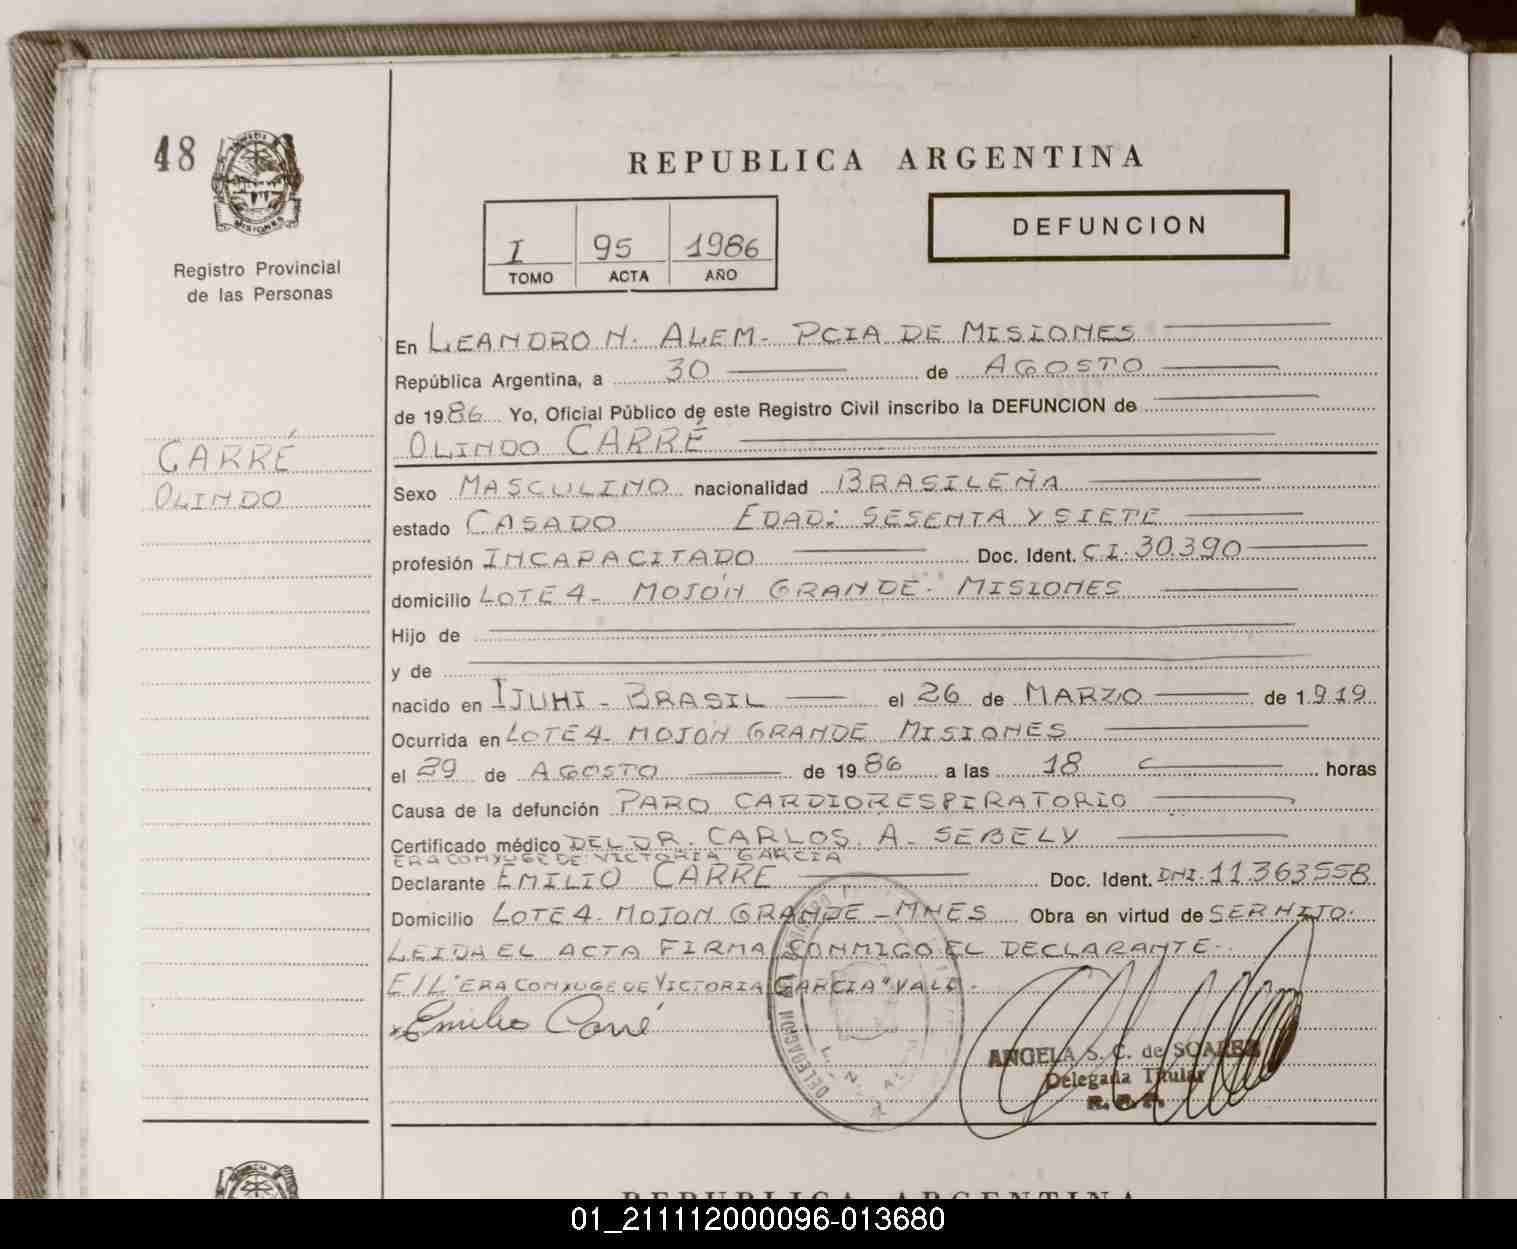 48
MISIONES
Registro Provincial
de las Personas
CARRÉ
OLINDO
REPUBLICA ARGENTINA
I 95 1986
TOMO ACTA AÑO
DEFUNCION
En LEANDRO N. ALEM- PCIA DE MISIONES
República Argentina, a 30 de AGOSTO
de 1986 Yo, Oficial Público de este Registro Civil inscribo la DEFUNCION de
OLINDO CARRÉ
Sexo MASCULINO nacionalidad BRASILEÑA
estado CASADO EDAD: SESENTA Y SIETE
profesión INCAPACITADO Doc. Ident. C.I. 30.390
domicilio LOTE 4- MOJÓN GRANDE- MISIONES
Hijo de
y de
nacido en IJUHI- BRASIL el 26 de MARZO de 1.919
Ocurrida en LOTE 4- MOJON GRANDE MISIONES
el 29 de AGOSTO de 1986 a las 18 horas
Causa de la defunción PARO CARDIORESPIRATORIO
Certificado médico DEL DR. CARLOS A. SEBELY
ERA CONYUGE DE VICTORIA GARCIA
Declarante EMILIO CARRE Doc. Ident. DNI. 11363558
Domicilio LOTE 4- MOJON GRANDE -MNES Obra en virtud de SER HIJO.
LEIDA EL ACTA FIRMA CONMIGO EL DECLARANTE-
E/L "ERA CONYUGE DE VICTORIA GARCIA" VALE-
x Emilio Carré
DELEGACION
L. N. ALEM
ANGELA S. C. de SOAREZ
Delegada Titular
R. P. P.
REPUBLICA ARGENTINA
01_211112000096-013680